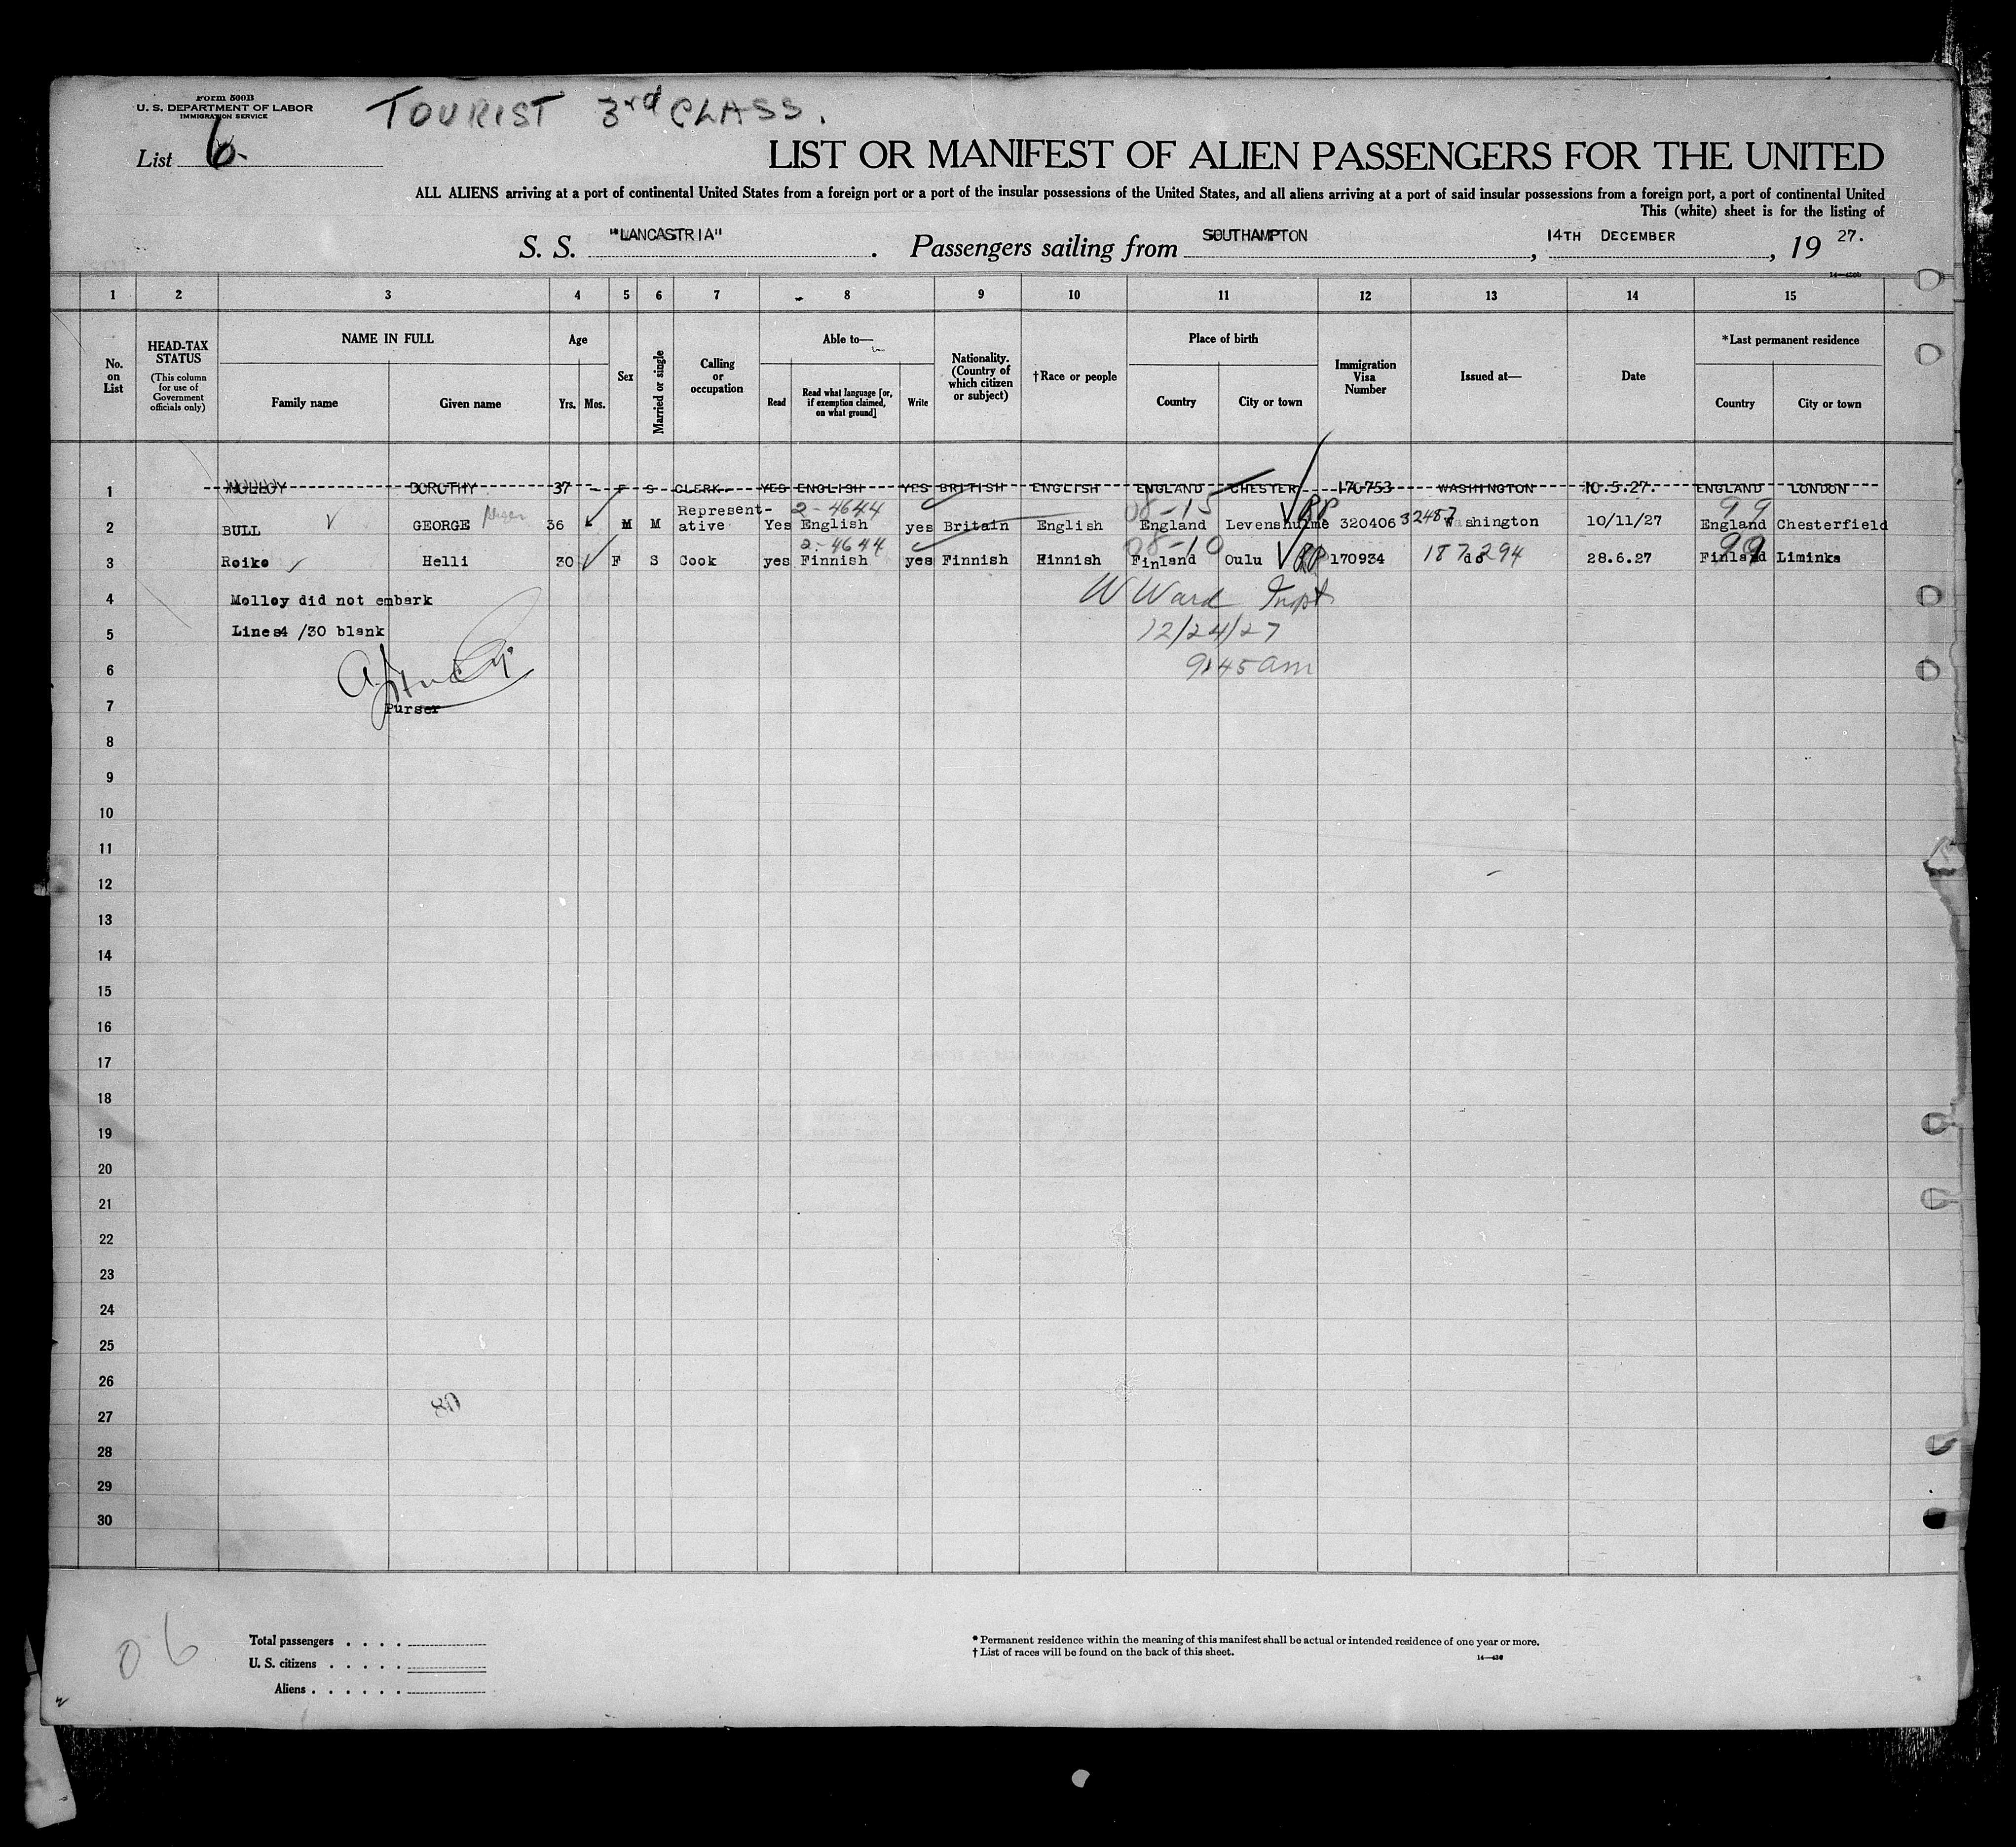 Form 500B
U. S. DEPARTMENT OF LABOR
IMMIGRATION SERVICE
TOURIST 3rd CLASS.
List 6.
LIST OR MANIFEST OF ALIEN PASSENGERS FOR THE UNITED
ALL ALIENS arriving at a port of continental United States from a foreign port or a port of the insular possessions of the United States, and all aliens arriving at a port of said insular possessions from a foreign port, a port of continental United
This (white) sheet is for the listing of
S. S. "LANCASTRIA". Passengers sailing from SOUTHAMPTON, 14TH DECEMBER, 19 27.
1 2 3 4 5 6 7 8 9 10 11 12 13 14 15
No. on List
HEAD-TAX STATUS (This column for use of Government officials only)
NAME IN FULL
Family name Given name
Age
Yrs. Mos.
Sex
Married or single
Calling or occupation
Able to—
Read
Read what language [or, if exemption claimed, on what ground]
Write
Nationality. (Country of which citizen or subject)
†Race or people
Place of birth
Country City or town
Immigration Visa Number
Issued at—
Date
*Last permanent residence
Country City or town
1 MOLLOY DOROTHY 37 - F S CLERK YES ENGLISH YES BRITISH ENGLISH ENGLAND CHESTER 170753 WASHINGTON 10.5.27. ENGLAND LONDON
Represent- 2-4644 08-15 99
2 BULL GEORGE 36 M M ative Yes English yes Britain English England Levenshulme 320406 32487 Washington 10/11/27 England Chesterfield
2-4644 08-10 99
3 Roiko Helli 30 F S Cook yes Finnish yes Finnish Finnish Finland Oulu 170934 187294 do 28.6.27 Finland Liminka
4 Molloy did not embark W Ward Inspt
5 Lines4 /30 blank 12/24/27
6 9.45 am
7 Purser
8
9
10
11
12
13
14
15
16
17
18
19
20
21
22
23
24
25
26
27
28
29
30
06
Total passengers
U. S. citizens
Aliens
* Permanent residence within the meaning of this manifest shall be actual or intended residence of one year or more.
† List of races will be found on the back of this sheet.